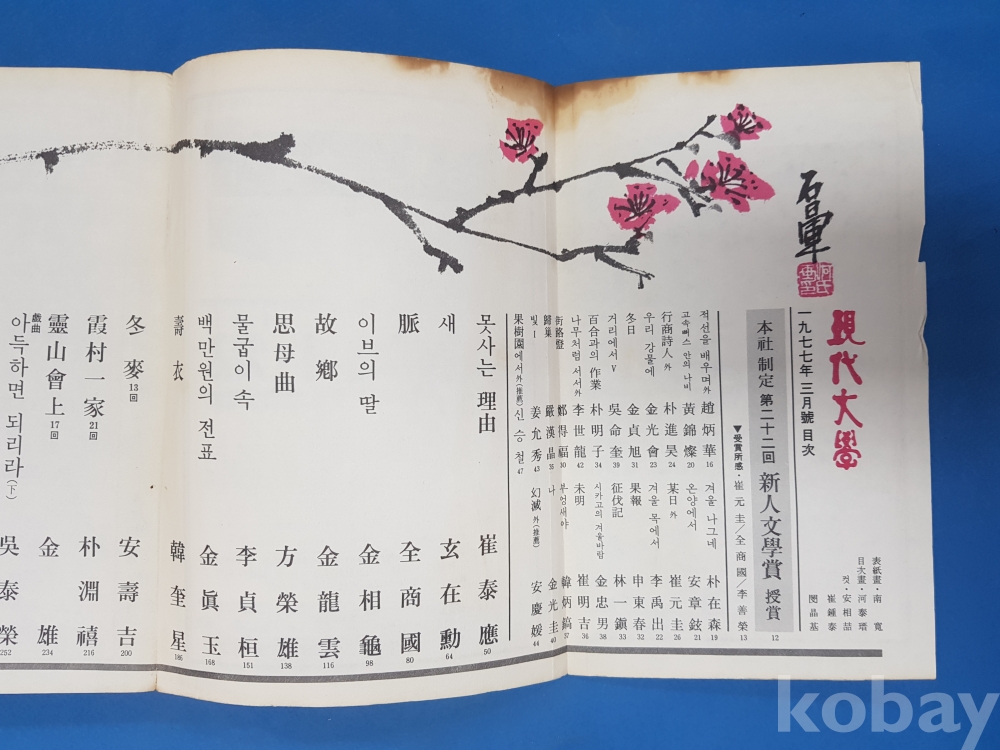 現代文學
一九七七年 三月號 目次
表紙畫・南寬
目次畫・河泰瑨
컷・安相喆
崔鍾泰
閔晶基
本社 制定 第二十二回 新人文學賞 授賞 12
▼受賞所感・崔元圭/全商國/李善榮 13
적선을 배우며 外 趙炳華 16
겨울 나그네 朴在森 19
고속뻐스 안의 나비 黃錦燦 20
온양에서 安章鉉 21
行商詩人 外 朴進昊 24
某日 外 崔元圭 26
우리 강물에 金光會 23
겨울 목에서 李禹出 22
冬日 金貞旭 31
果報 申東春 32
거리에서 V 吳命奎 39
征伐記 林一鎭 33
百合과의 作業 朴明子 34
시카고의 겨울바람 金忠男 38
나무처럼 서서 外 李世龍 42
未明 崔明吉 36
街路燈 鄭得福 30
부엉새야 韓炳鎬 37
歸巢 嚴漢晶 35
나 金光圭 40
빛Ⅰ 姜允秀 43
幻滅 外(推薦) 安慶媛 44
果樹園에서 外(推薦) 신승철 47
못사는 理由 崔泰應 50
새 玄在勳 64
脈 全商國 80
이브의 딸 金相龜 98
故鄕 金龍雲 116
思母曲 方榮雄 138
물굽이 속 李貞桓 151
백만원의 전표 金眞玉 168
壽衣 韓奎星 186
冬麥 13回 安壽吉 200
霞村一家 21回 朴淵禧 216
靈山會上 17回 金雄 234
戱曲
아득하면 되리라(下) 吳泰榮 252
kobay